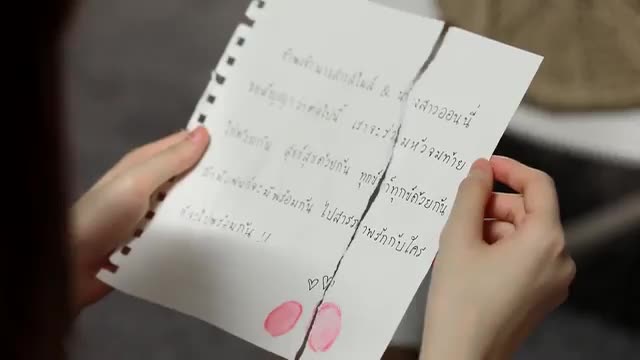 ข้าพเจ้านายสกลไมล์ & นางสาวออนนี่
ขอสัญญาว่าต่อไปนี้ เราจะร่วมหัวจมท้าย
ไปด้วยกัน สุขก็สุขด้วยกัน ทุกข์ก็ทุกข์ด้วยกัน
พร้อมกัน ไปสารภาพรักกับใคร
ต้องไปพร้อมกัน !!